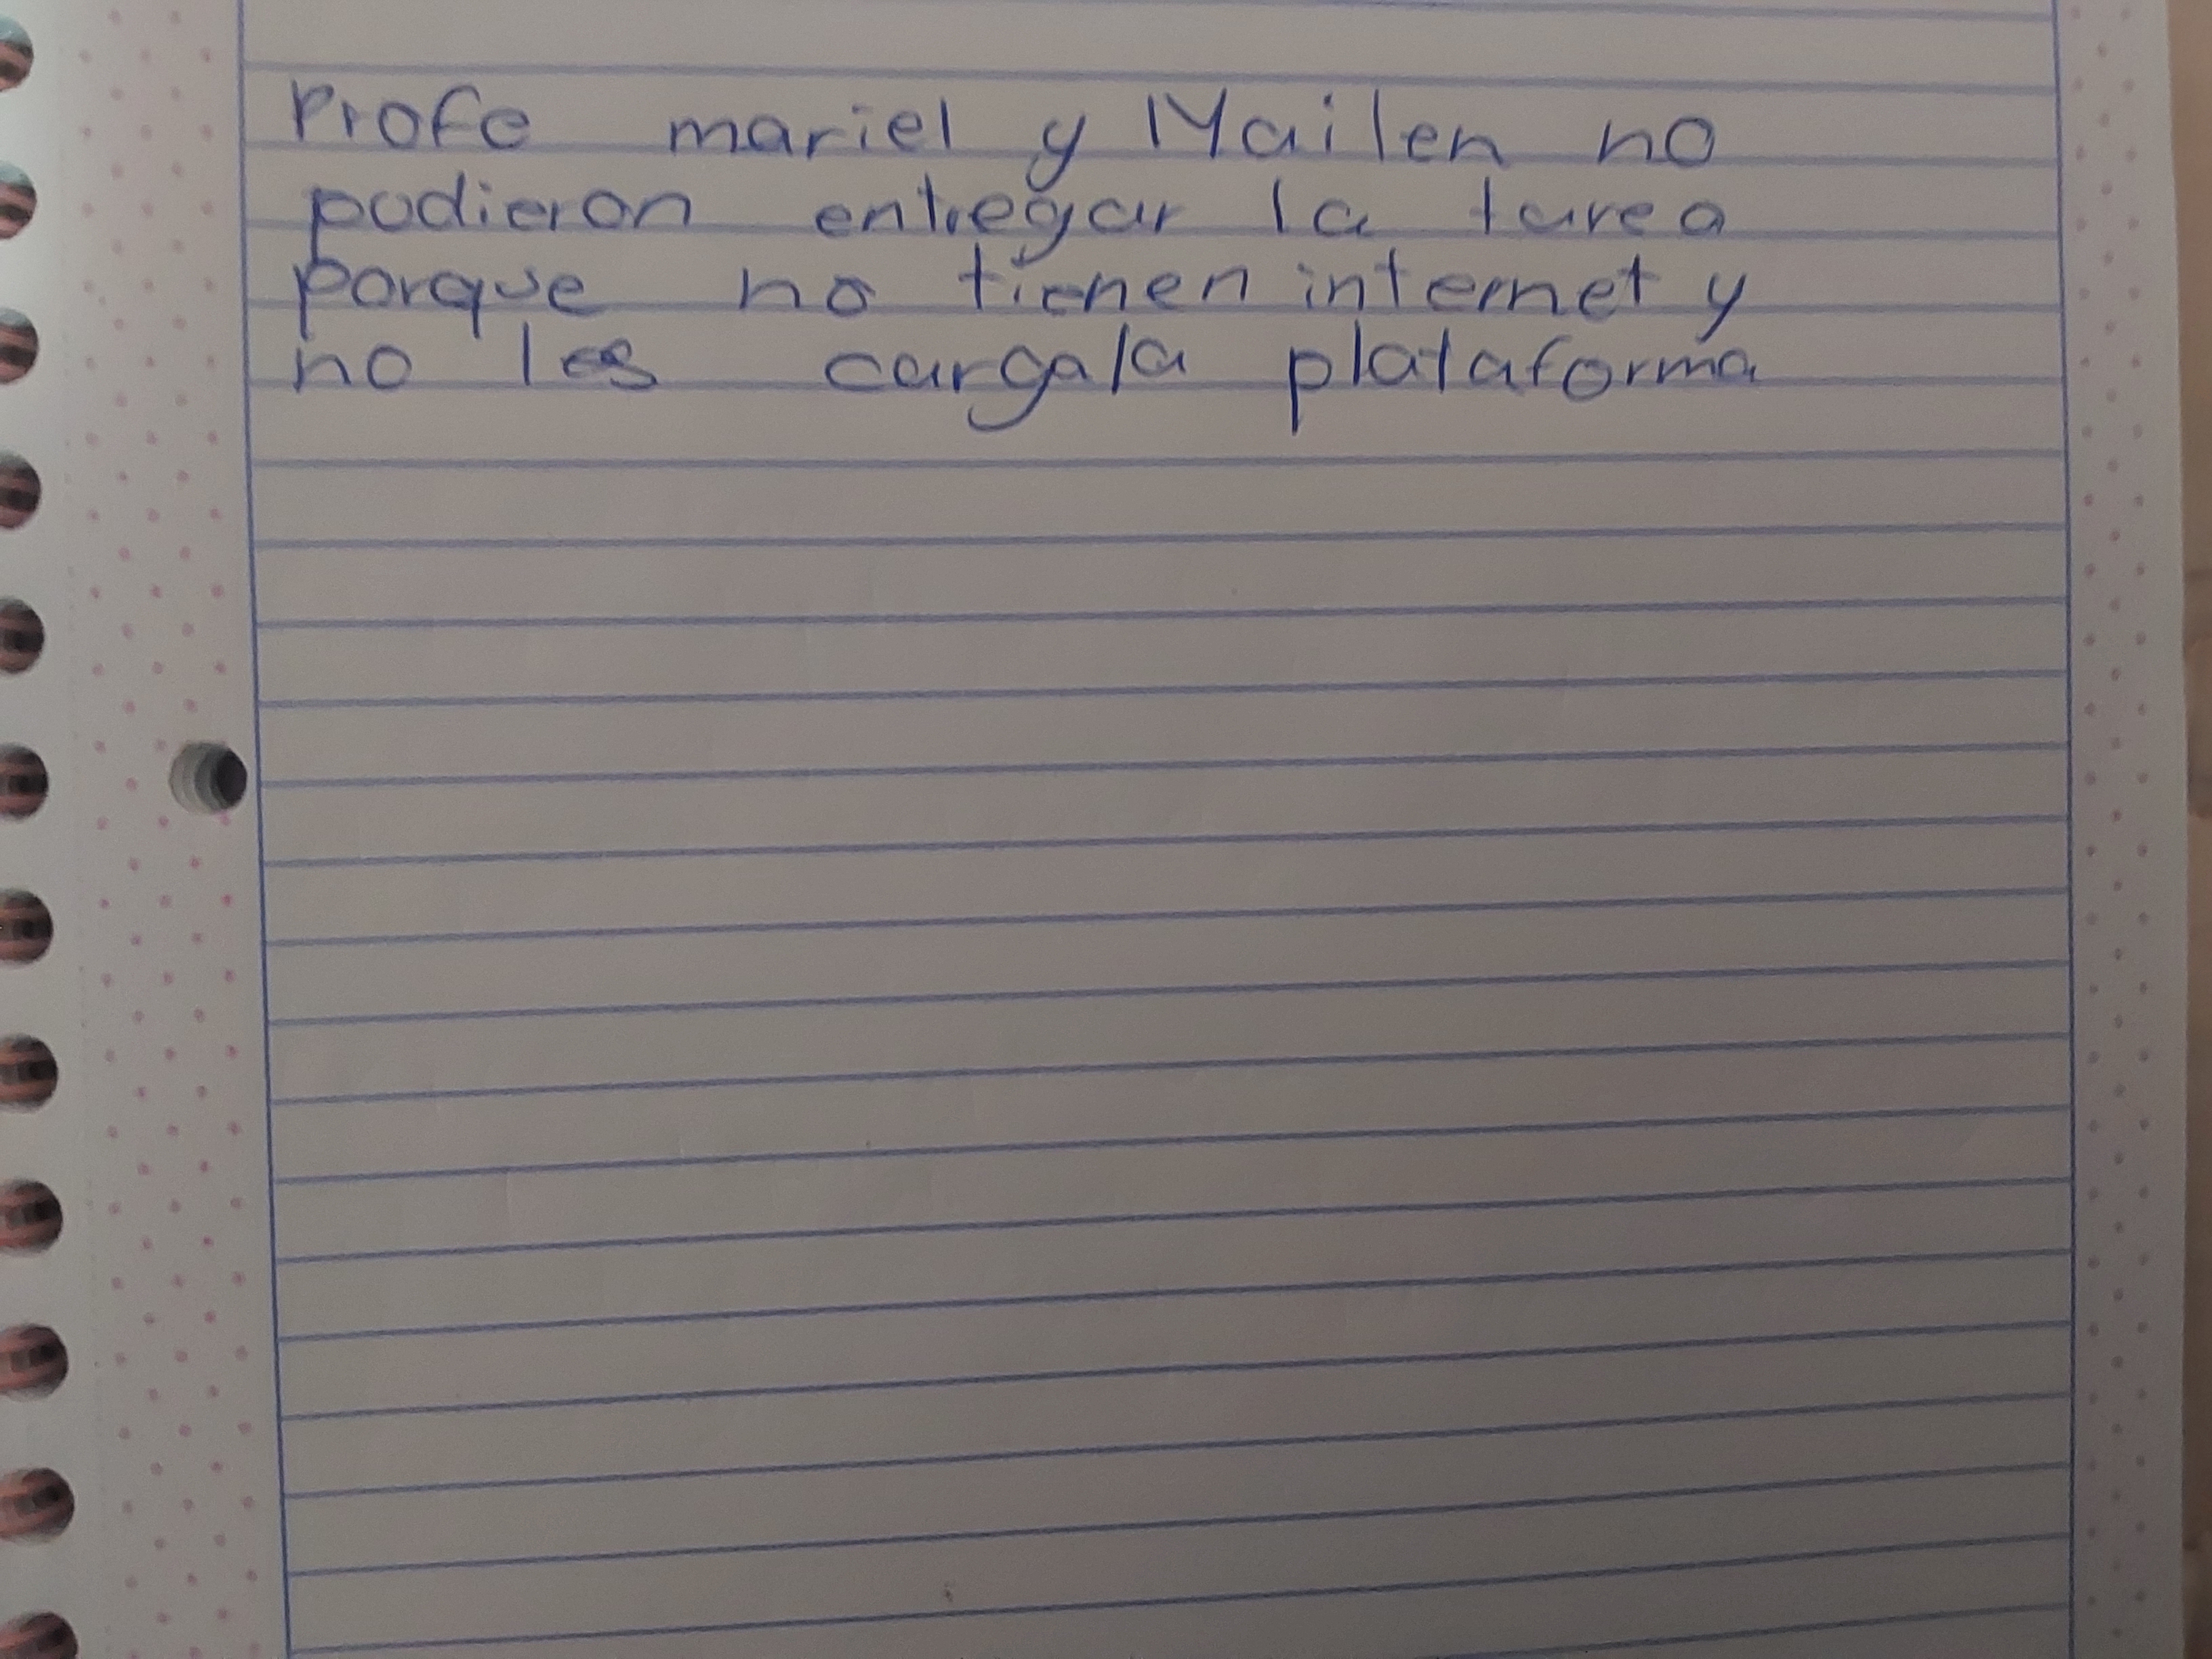 Profe mariel y Mailen no
pudieron entregar la tarea
porque no tienen internet y
no les carga la plataforma